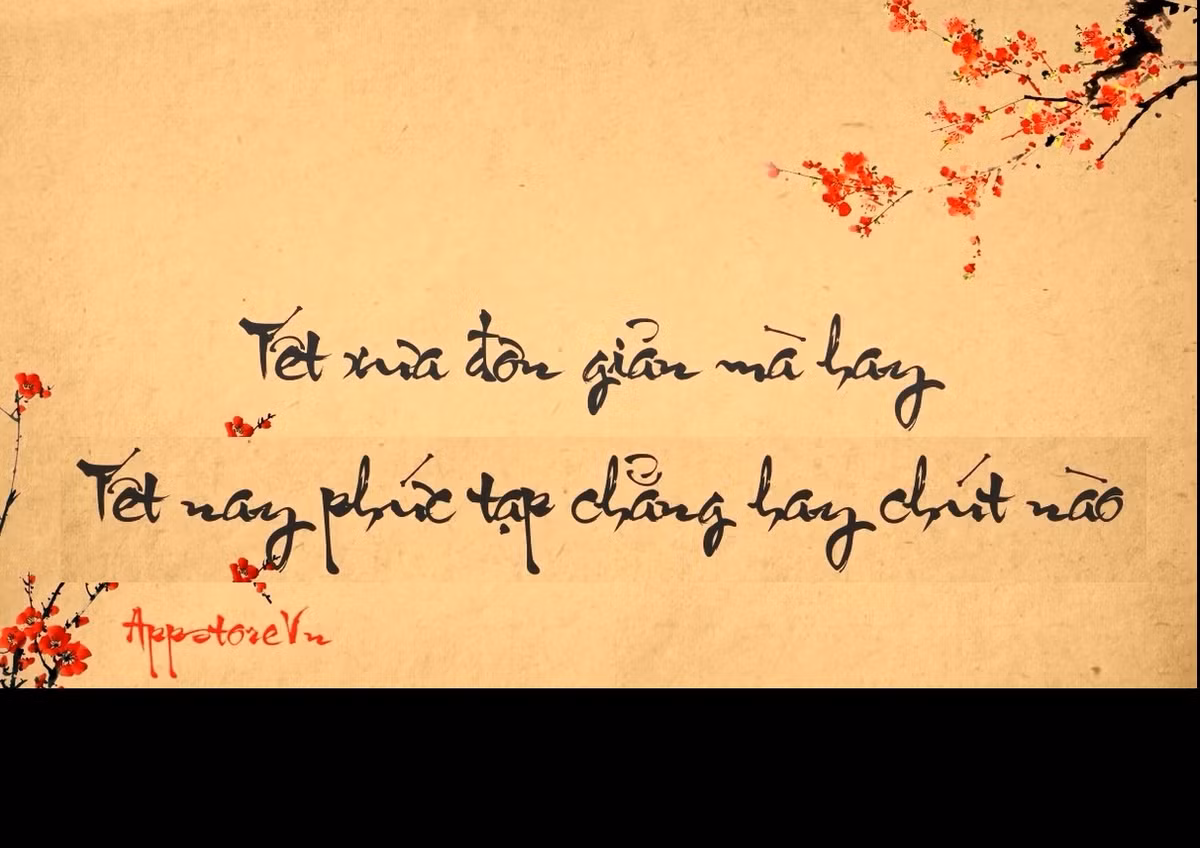 Tết xưa đơn giản mà hay
Tết nay phức tạp chẳng hay chút nào
AppstoreVn